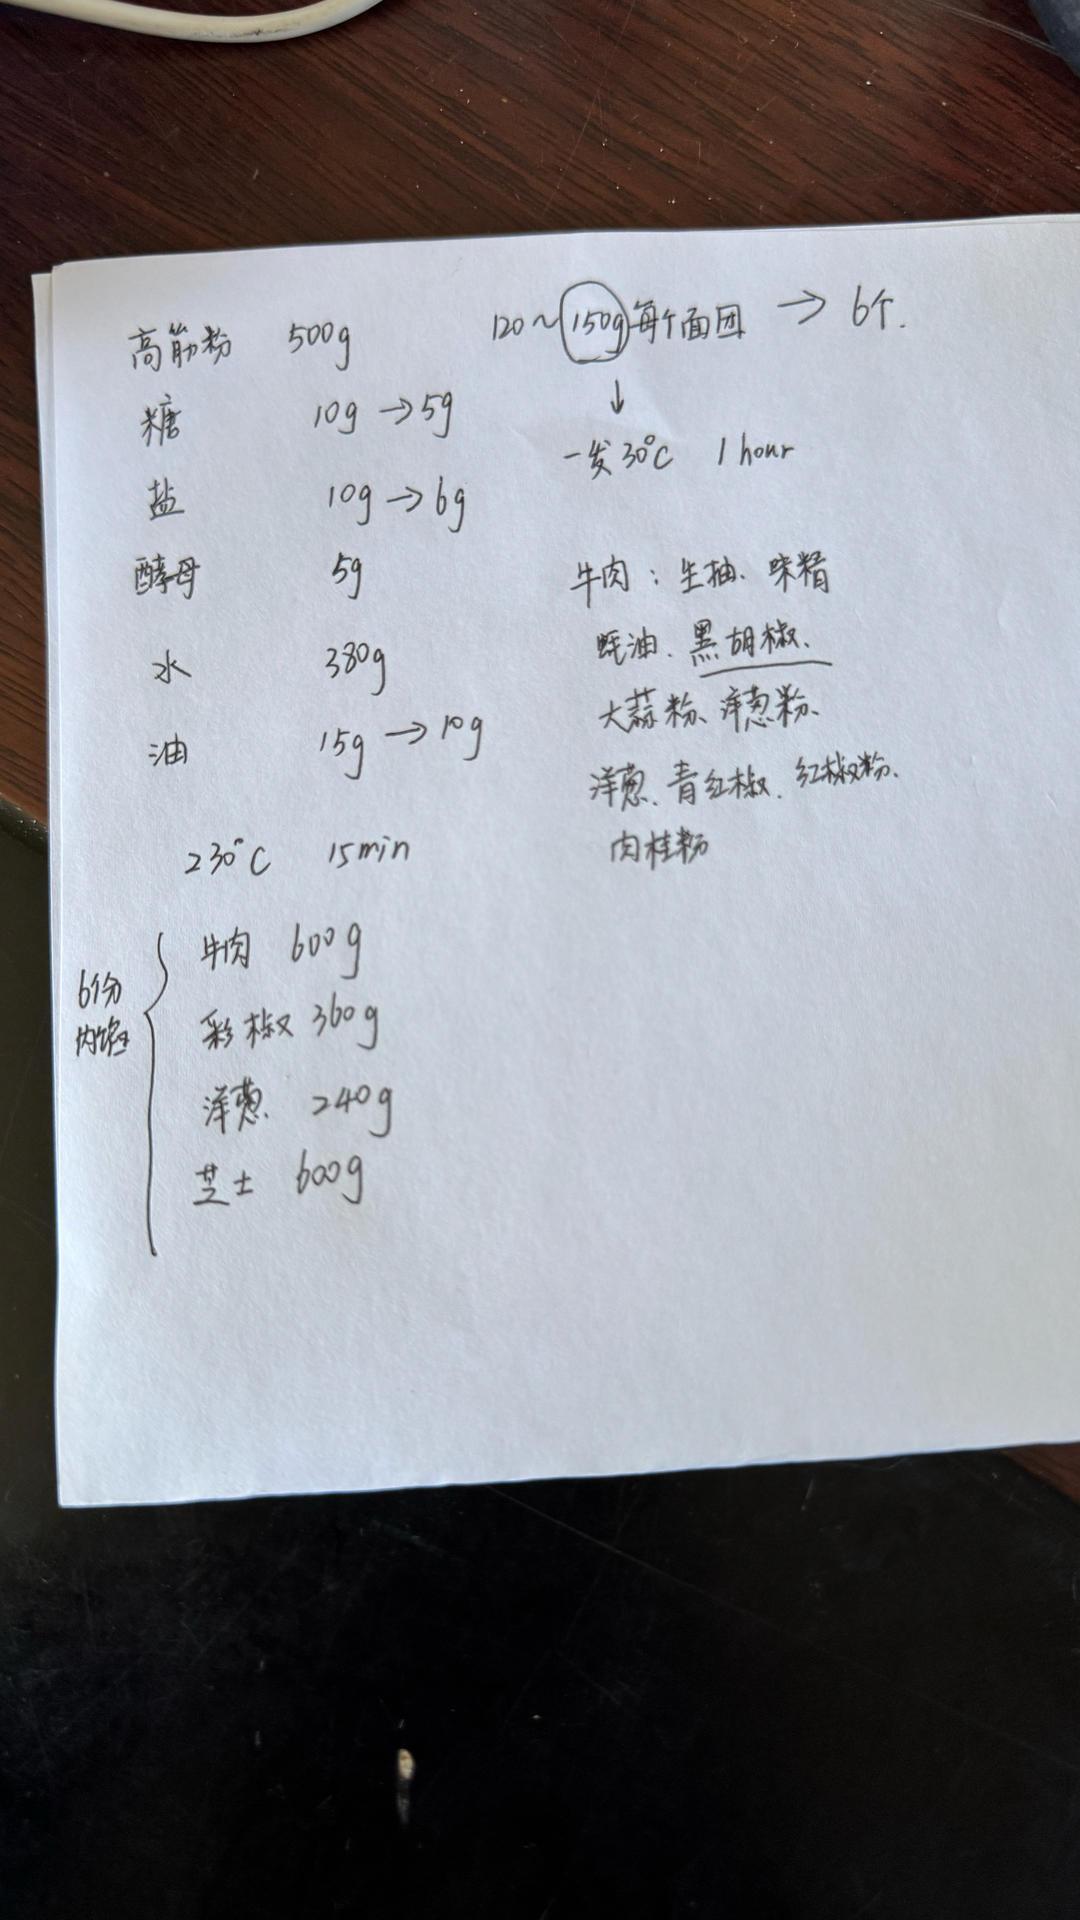 高筋粉 500g
糖 10g → 5g
盐 10g → 6g
酵母 5g
水 380g
油 15g → 10g
230°C 15min
6份内馅
牛肉 600g
彩椒 360g
洋葱 240g
芝士 600g
120~150g每个面团 → 6个.
↓
一发30°C 1 hour
牛肉：生抽、味精
蚝油、黑胡椒、
大蒜粉、洋葱粉、
洋葱、青红椒、红椒粉、
肉桂粉